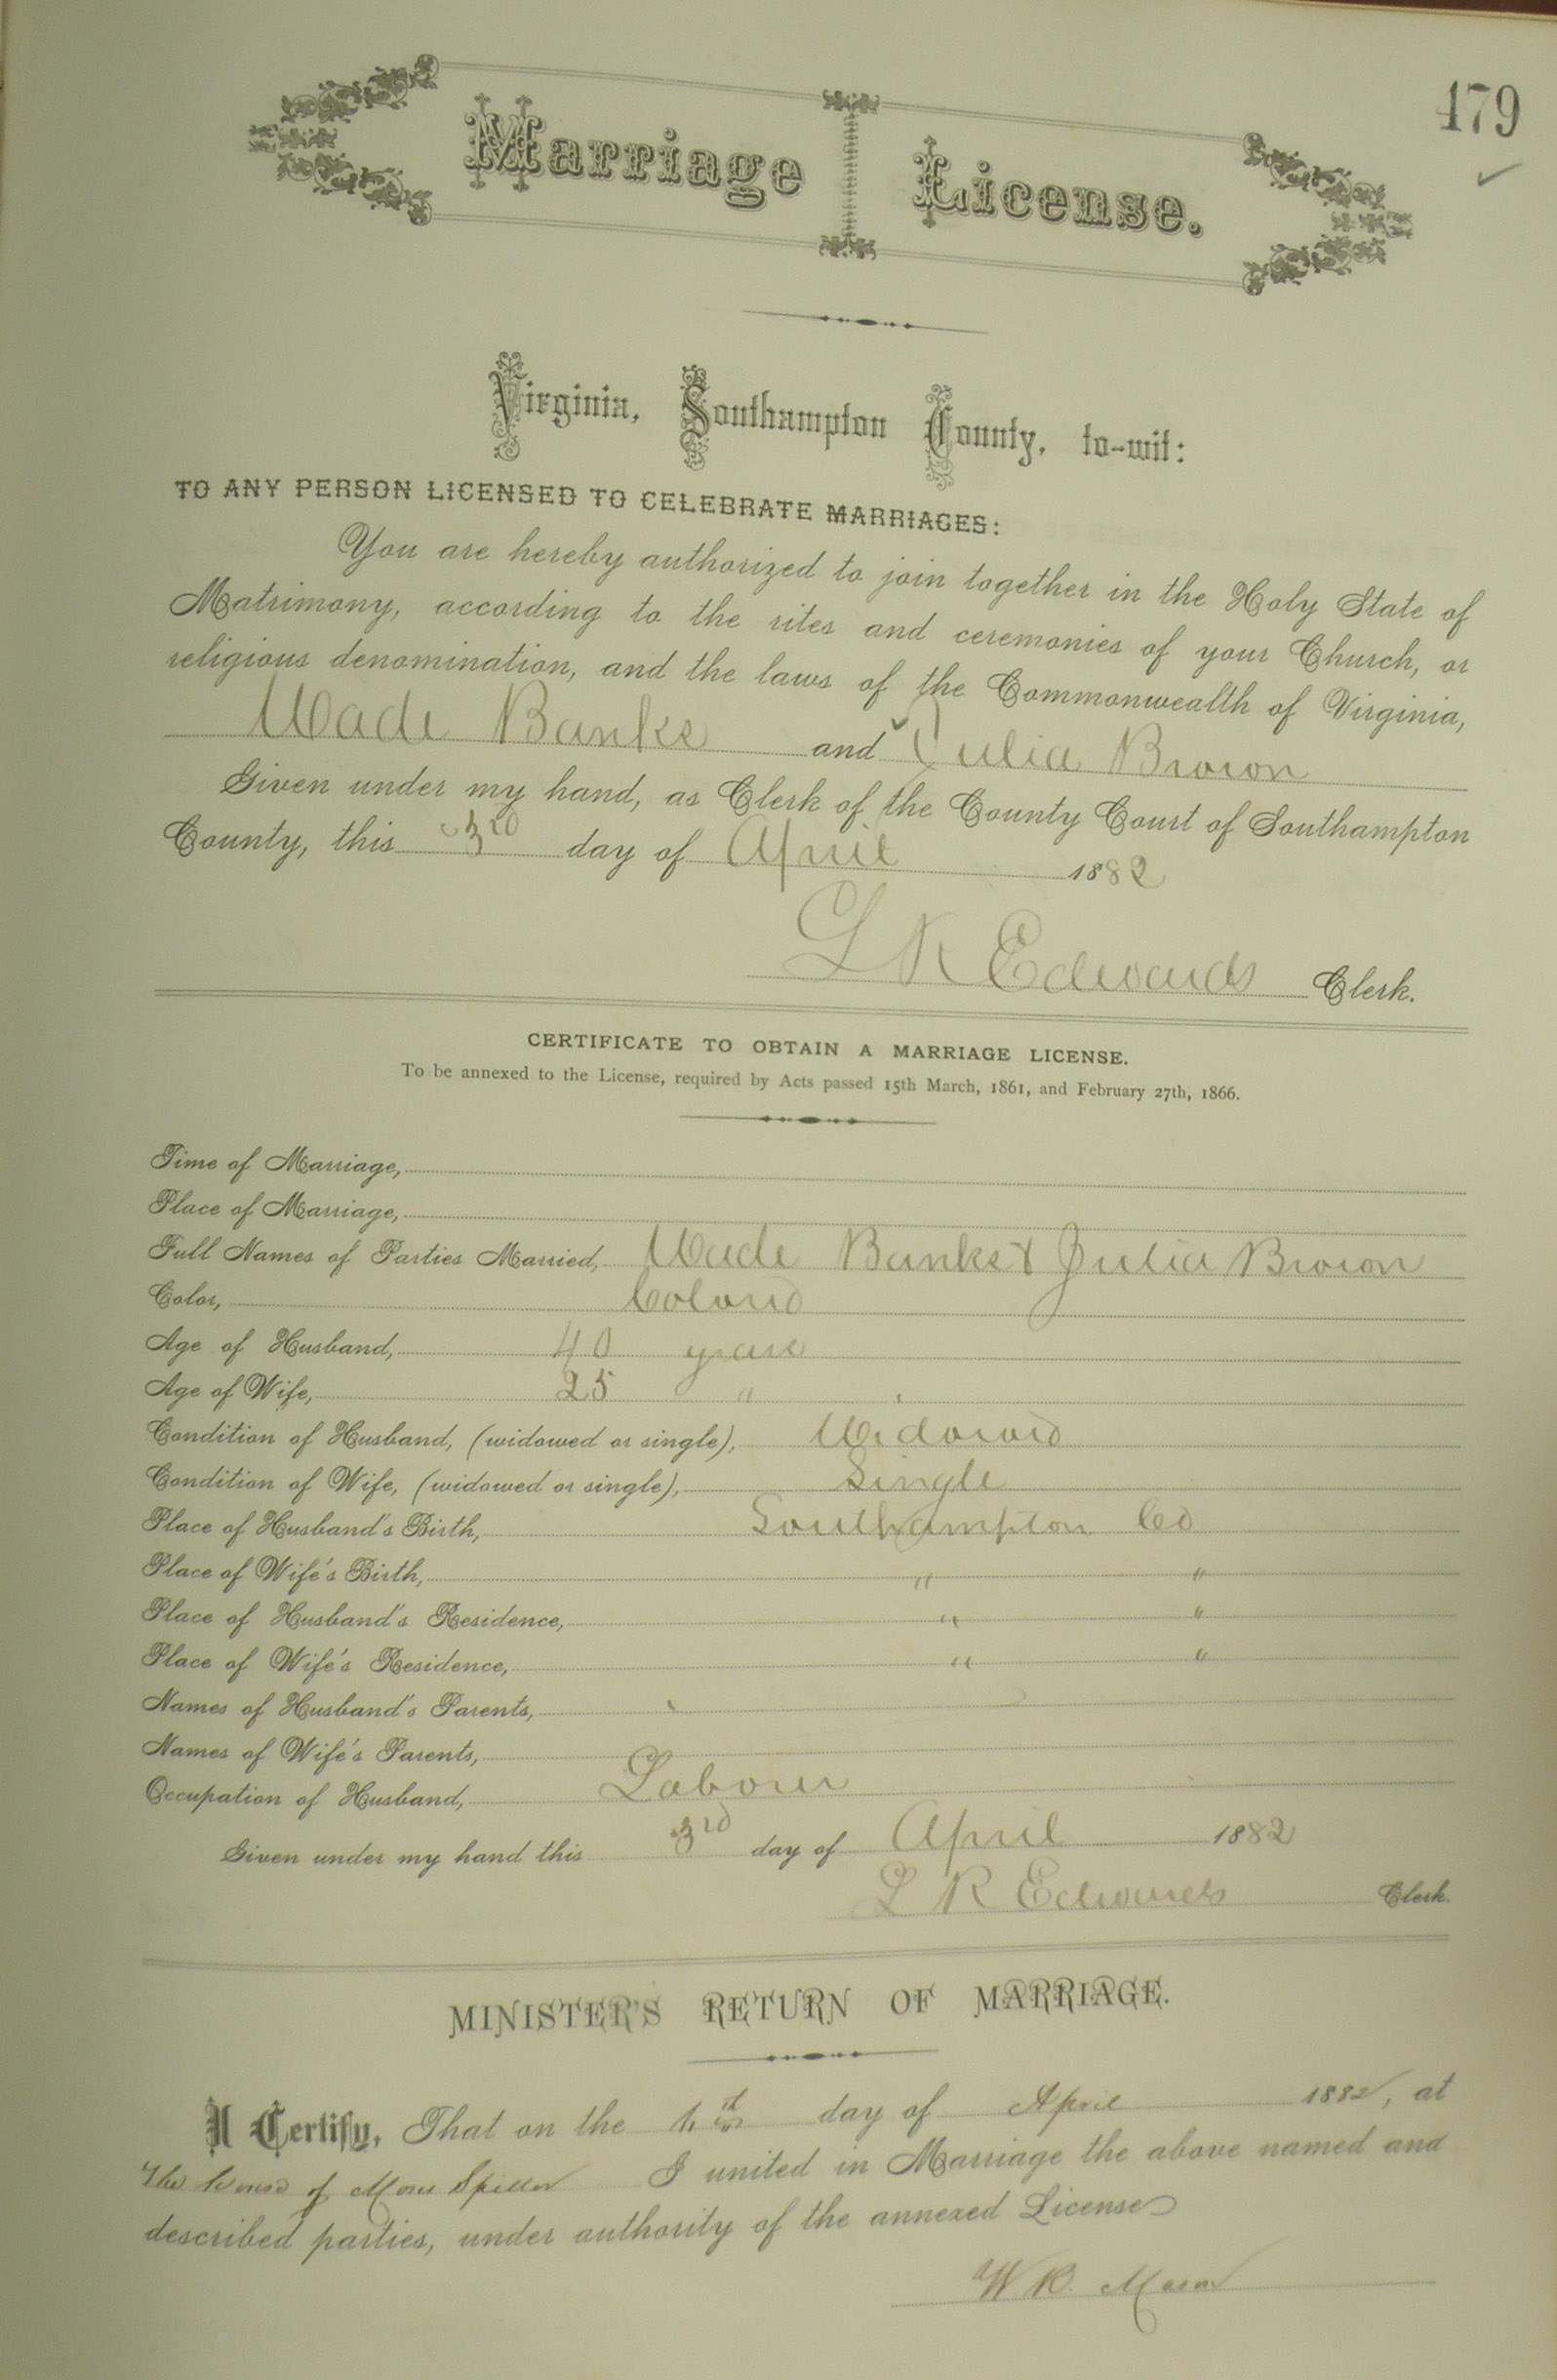 479
Marriage License.
Virginia, Southampton County, to-wit:
TO ANY PERSON LICENSED TO CELEBRATE MARRIAGES:
You are hereby authorized to join together in the Holy State of
Matrimony, according to the rites and ceremonies of your Church, or
religious denomination, and the laws of the Commonwealth of Virginia,
Wade Banks and Julia Brown
Given under my hand, as Clerk of the County Court of Southampton
County, this 3rd day of April 1882
L R Edwards Clerk.
CERTIFICATE TO OBTAIN A MARRIAGE LICENSE.
To be annexed to the License, required by Acts passed 15th March, 1861, and February 27th, 1866.
Time of Marriage,
Place of Marriage,
Full Names of Parties Married, Wade Banks & Julia Brown
Color, Colored
Age of Husband, 40 years
Age of Wife, 25 "
Condition of Husband, (widowed or single), Widowed
Condition of Wife, (widowed or single), Single
Place of Husband's Birth, Southampton Co
Place of Wife's Birth, " "
Place of Husband's Residence, " "
Place of Wife's Residence, " "
Names of Husband's Parents,
Names of Wife's Parents,
Occupation of Husband, Laborer
Given under my hand this 3rd day of April 1882
L R Edwards Clerk.
MINISTER'S RETURN OF MARRIAGE.
I Certify, That on the day of April 1882, at
The house of I united in Marriage the above named and
described parties, under authority of the annexed License
W R.